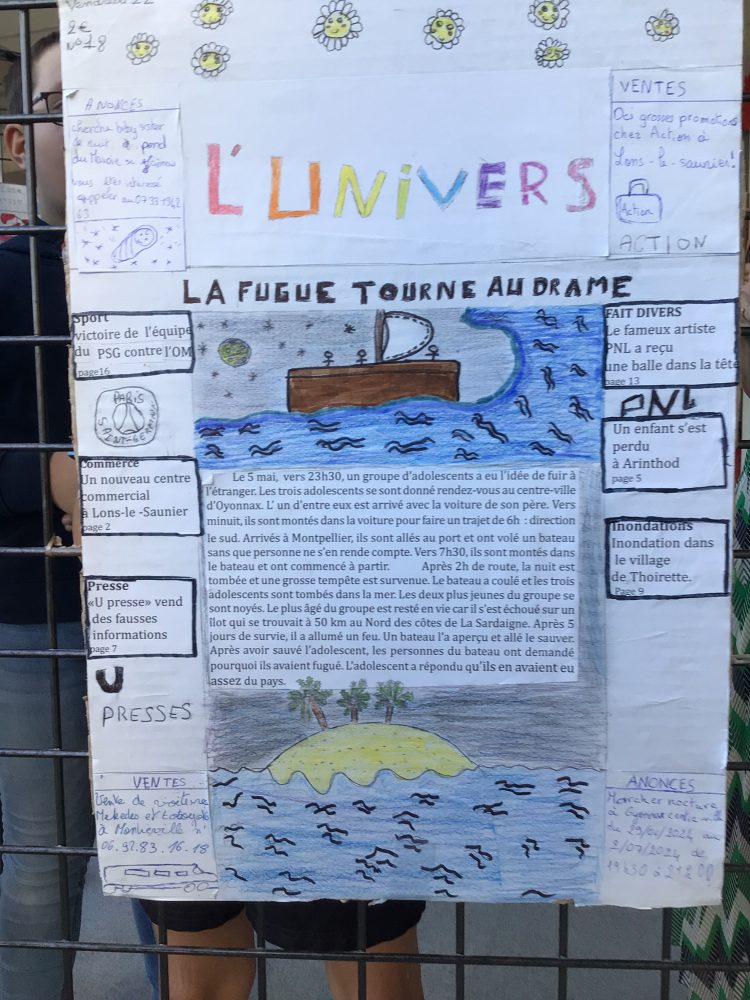 Vendredi 22
2€
N°18
ANONCES
cherche baby sister
de nuit à pond
du Navoire si
vous êtes intéressé
appeler au 07 33 1342
63
VENTES
Des grosses promotions
chez Action à
Lons-le-saunier!
Action
ACTION
L'UNIVERS
LA FUGUE TOURNE AU DRAME
Sport
victoire de l'équipe
du PSG contre l'OM
page16
PARIS
SAINT-GERMAIN
Commerce
Un nouveau centre
commercial
à Lons-le -Saunier
page 2
Presse
«U presse» vend
des fausses
informations
page 7
U
PRESSES
Le 5 mai, vers 23h30, un groupe d'adolescents a eu l'idée de fuir à
l'étranger. Les trois adolescents se sont donné rendez-vous au centre-ville
d'Oyonnax. L' un d'entre eux est arrivé avec la voiture de son père. Vers
minuit, ils sont montés dans la voiture pour faire un trajet de 6h : direction
le sud. Arrivés à Montpellier, ils sont allés au port et ont volé un bateau
sans que personne ne s'en rende compte. Vers 7h30, ils sont montés dans
le bateau et ont commencé à partir. Après 2h de route, la nuit est
tombée et une grosse tempête est survenue. Le bateau a coulé et les trois
adolescents sont tombés dans la mer. Les deux plus jeunes du groupe se
sont noyés. Le plus âgé du groupe est resté en vie car il s'est échoué sur un
îlot qui se trouvait à 50 km au Nord des côtes de La Sardaigne. Après 5
jours de survie, il a allumé un feu. Un bateau l'a aperçu et allé le sauver.
Après avoir sauvé l'adolescent, les personnes du bateau ont demandé
pourquoi ils avaient fugué. L'adolescent a répondu qu'ils en avaient eu
assez du pays.
FAIT DIVERS
Le fameux artiste
PNL a reçu
une balle dans la tête
page 13
PNL
Un enfant s'est
perdu
à Arinthod
page 5
Inondations
Inondation dans
le village
de Thoirette.
Page 9
VENTES
Vente de voiture
à
06.92.83.16.18
ANONCES
Marcher nocturne
à centre ville
du 29/04/2024 au
2/07/2024 de
19h30 à